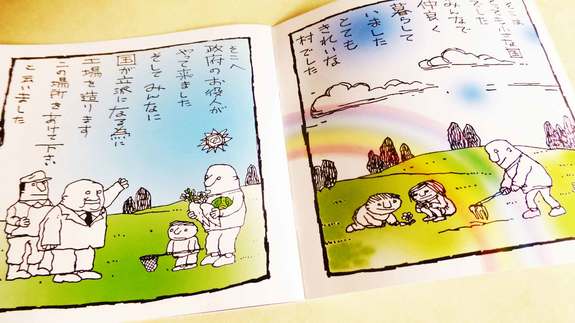 みんなで
仲良く
暮らして
いました
とても
きれいな
村でした
そこへ
政府のお役人が
やって来ました
そして みんなに
国が立派になる為に
工場を造ります
この場所をあけて下さい
と云いました